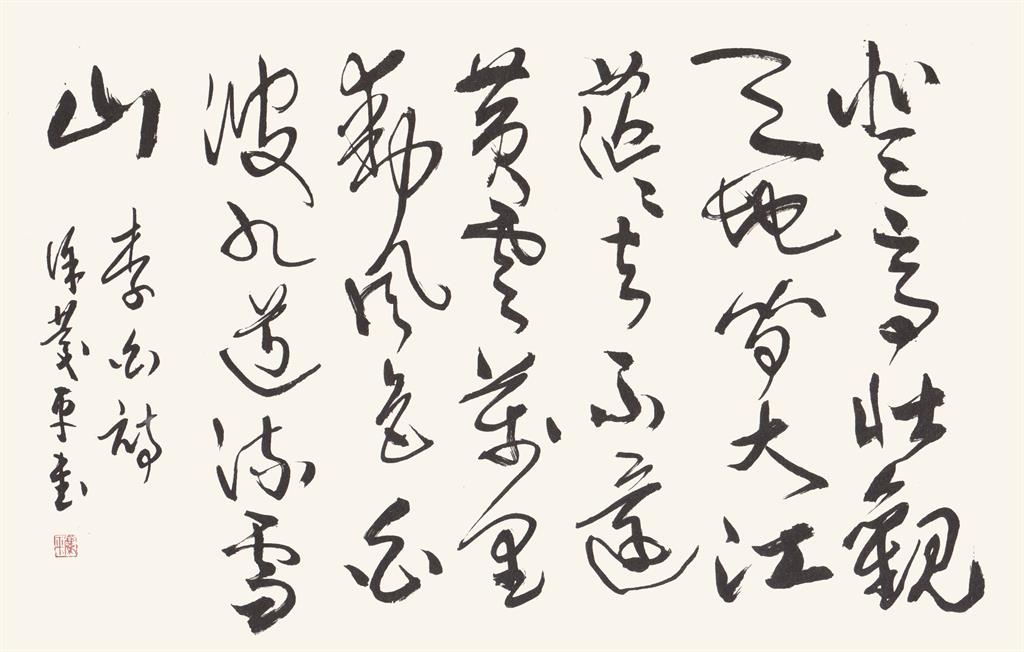 登高壯觀
天地間大江
茫茫去不還
黃雲萬里
動風色白
波九道流雪
山
李白詩
徐茂平書